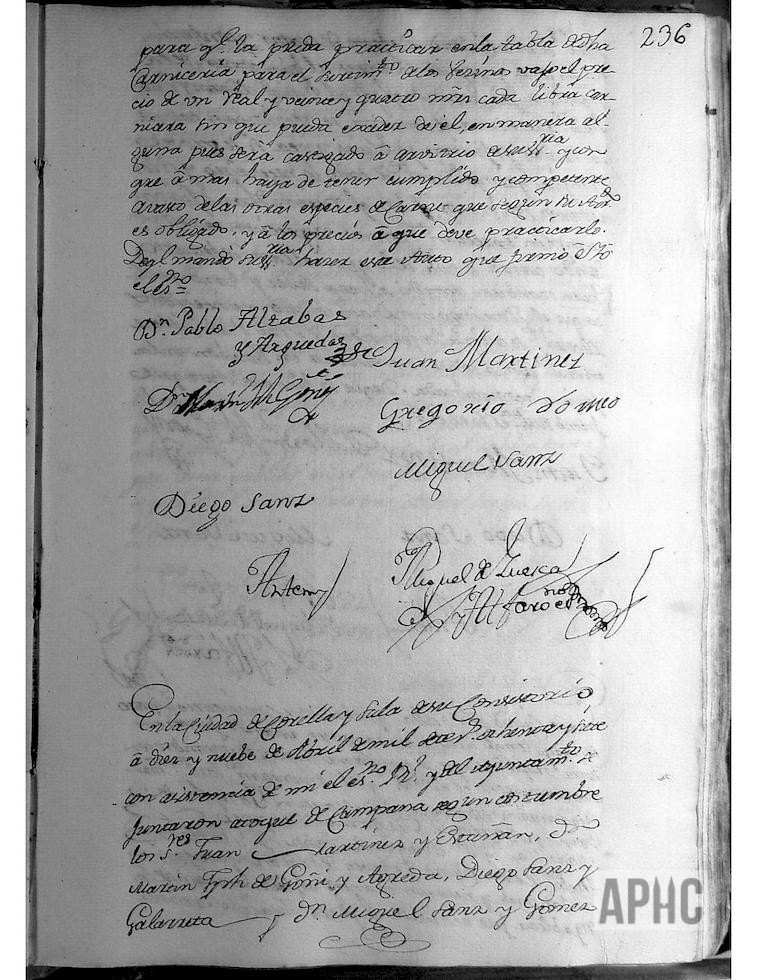 236
para q.e la pueda practicar en la tabla de dha
Carniceria para el surtim.to de los Vezinos vajo el pre-
cio de un Real y veinte y quatro mrs cada libra car-
nizera sin que pueda exceder de él, en manera al-
guna pues sera castigado â arvitrio de su ss.ria y con
que â mas haya de tener cumplido y competente
avasto de las otras especies de Carne que segun su
es obligado, y â los precios â que deve practicarlo.
De q.l mando su ss.ria hacer este Auto que firmó é Yo
el es.no =
D.n Pablo Alzabas
y Arguedas
Juan Martinez
D.n Goñi
Gregorio
Miguel Sanz
Diego Sanz
Antemi
Miguel de Luesca
y Alfaro es.no
En la Ciudad de Corella y Sala de su Consistorio
â diez y nuebe de Abril de mil sete.s ochenta y siete
con asistencia de mi el es.no R.l y del Ayuntam.to se
juntaron atoque de Campana segun costumbre
los S.res Juan Martinez y Escuñan, d.n
Martin de Goñi y Agreda, Diego Sanz y
Galarreta y d.n Miguel Sanz y Gomez
APHC